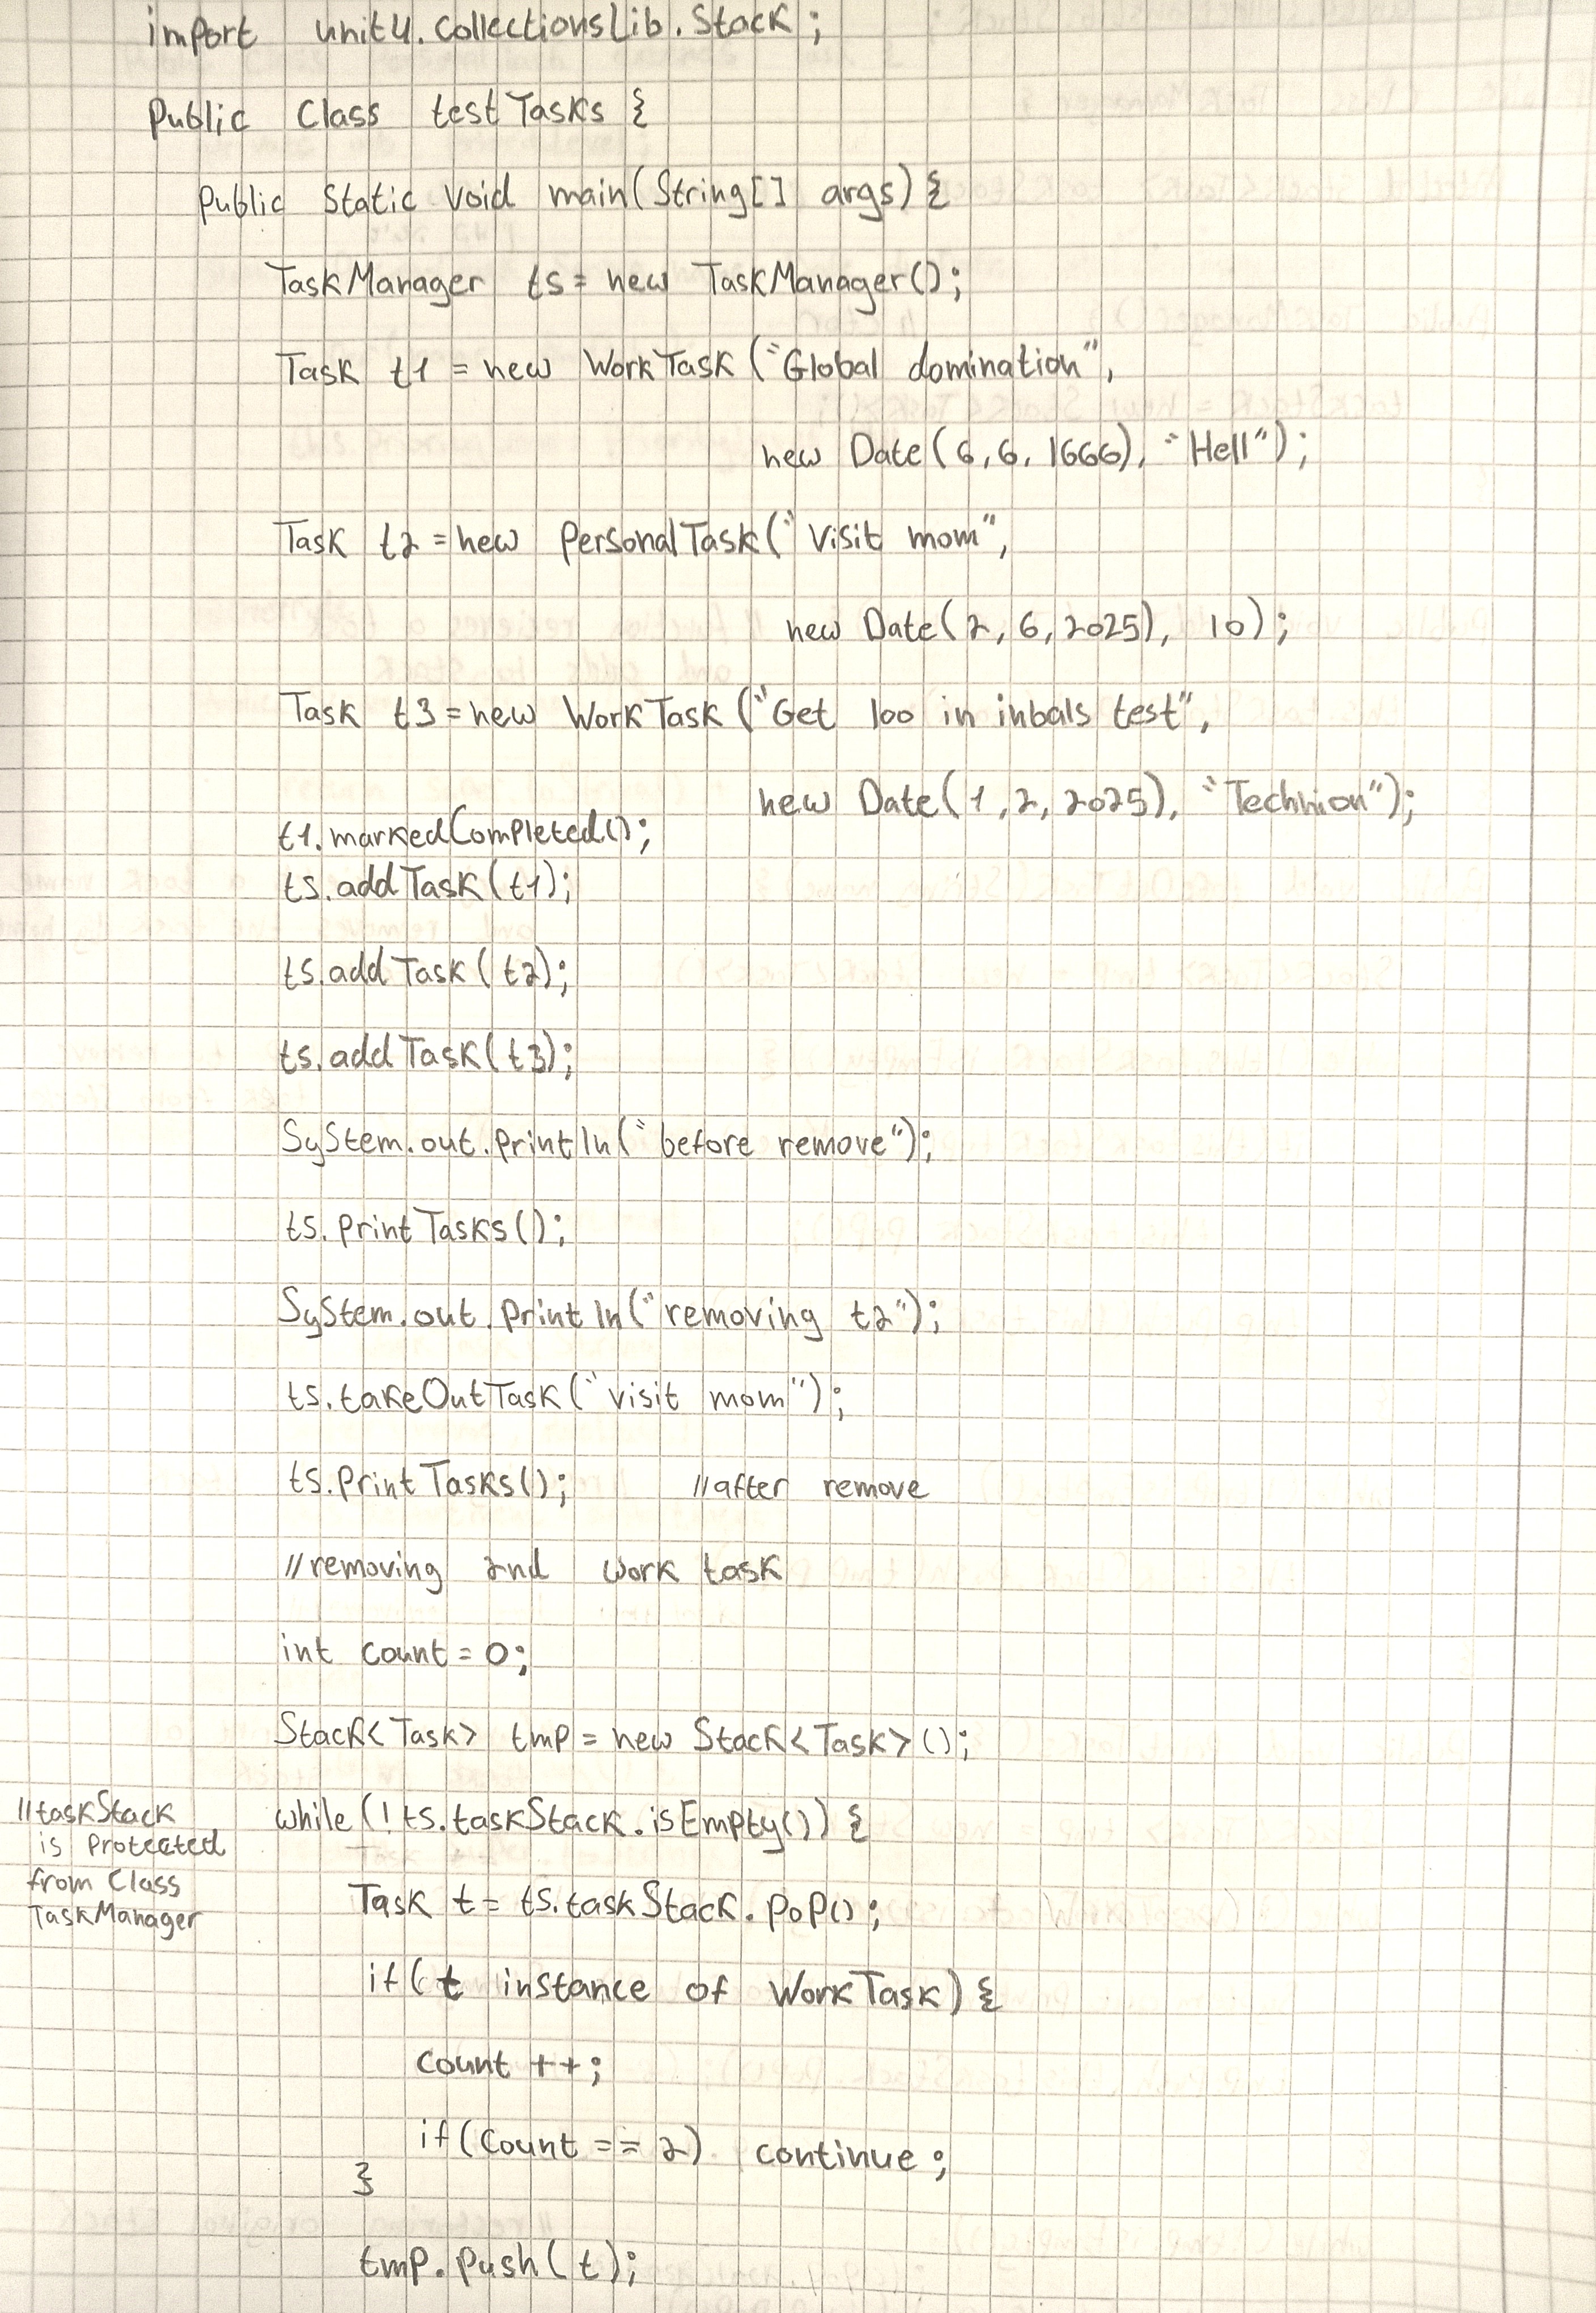 import unit4.collectionsLib.Stack;
Public Class testTasks {
Public Static void main(String[] args){
TaskManager ts = new TaskManager();
Task t1 = new WorkTask("Global domination",
new Date(6,6,1666), "Hell");
Task t2 = new PersonalTask("visit mom",
new Date(2,6,2025), 10);
Task t3 = new WorkTask("Get 100 in inbals test",
new Date(1,2,2025), "Technion");
t1.markedCompleted();
ts.addTask(t1);
ts.addTask(t2);
ts.addTask(t3);
System.out.println("before remove");
ts.printTasks();
System.out.println("removing t2");
ts.takeOutTask("visit mom");
ts.printTasks(); //after remove
//removing 2nd work task
int count = 0;
Stack<Task> tmp = new Stack<Task>();
//taskStack
is Protected
from Class
TaskManager
while(!ts.taskStack.isEmpty()) {
Task t = ts.taskStack.pop();
if(t instance of WorkTask) {
count ++;
if(count == 2) continue;
}
tmp.push(t);